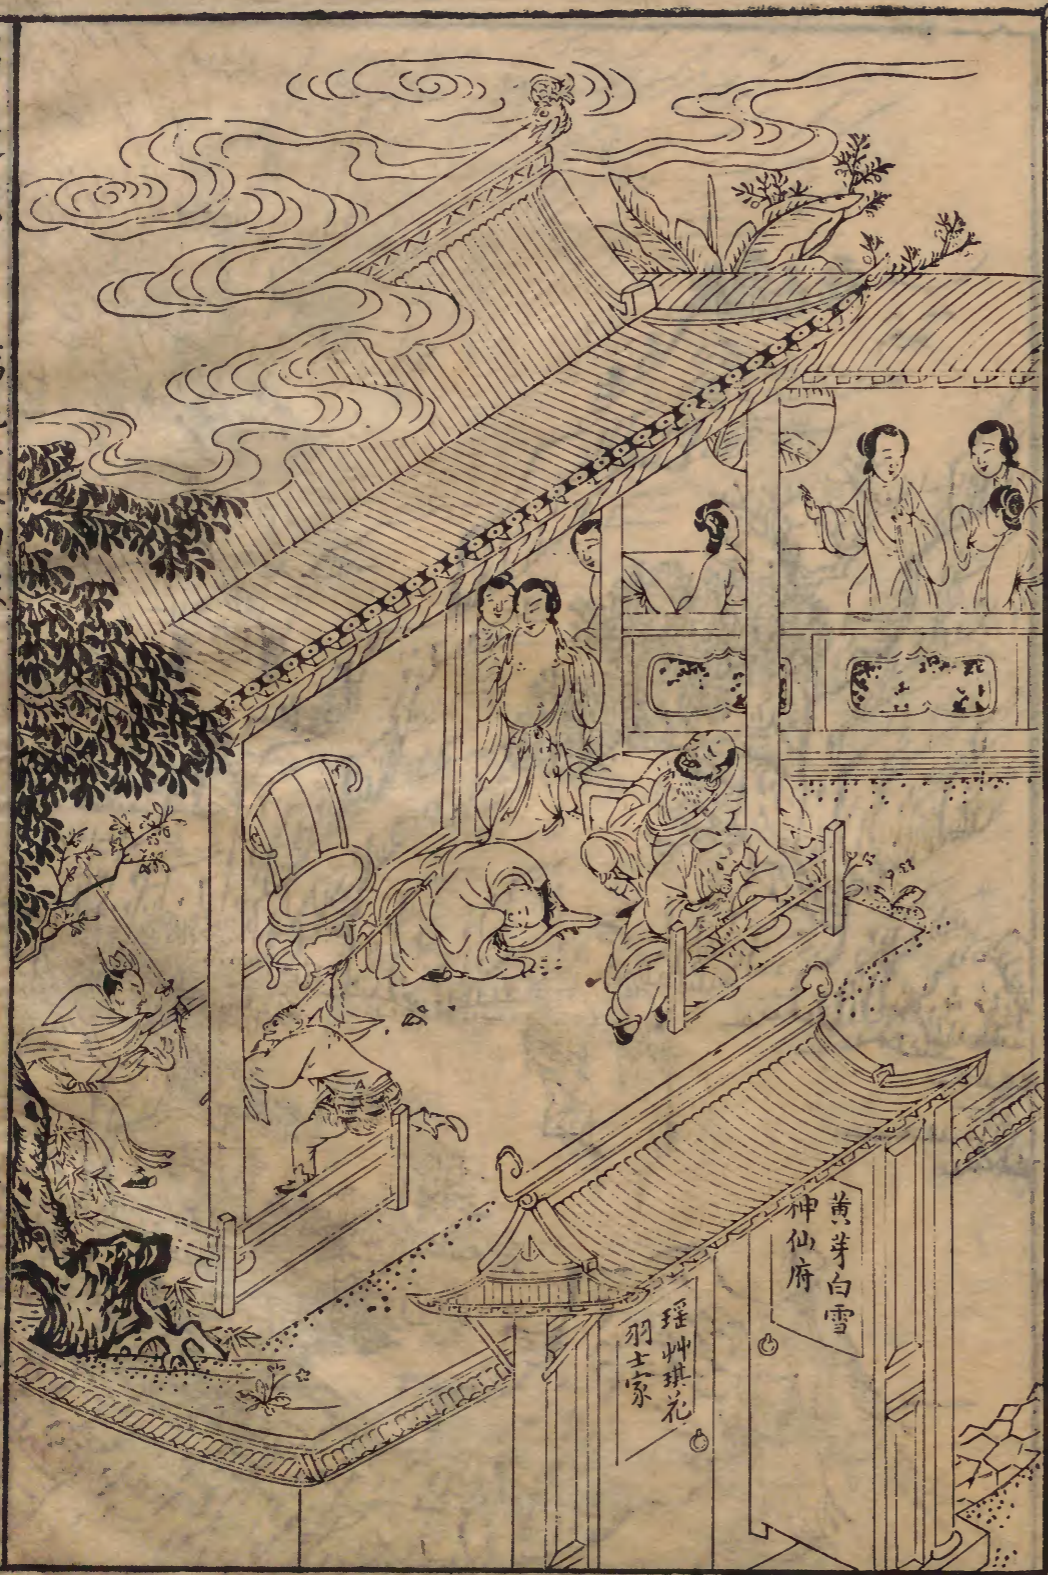 黄芽白雪
神仙府
瑶艸琪花
羽士家